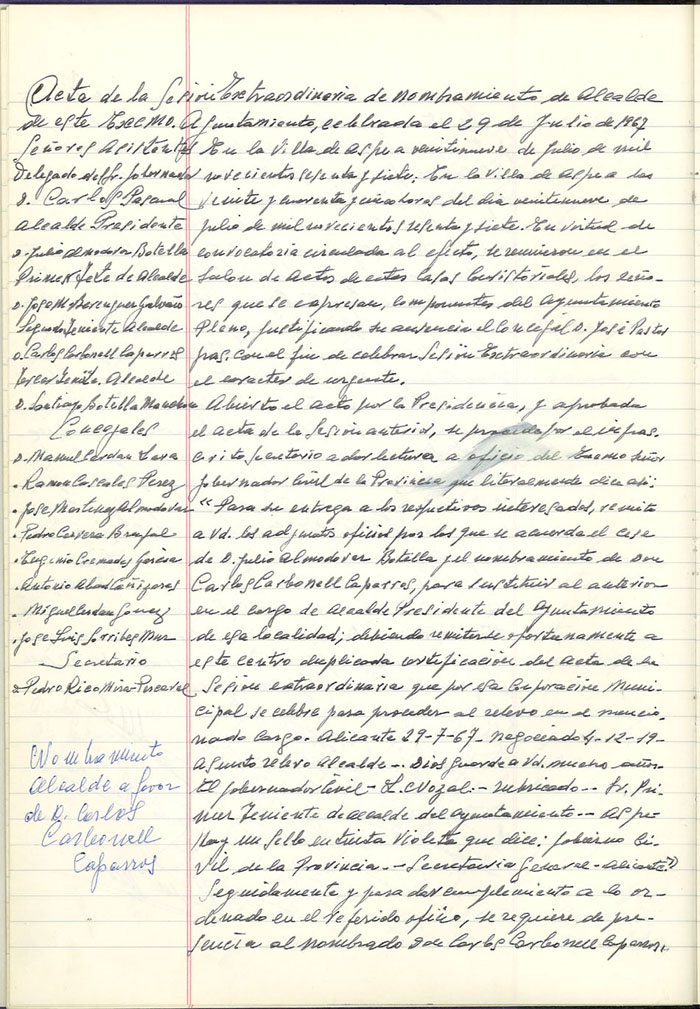 Acta de la Sesión Extraordinaria de nombramiento de Alcalde
de este Excmo. Ayuntamiento, celebrada el 29 de Julio de 1967
Señores Asistentes
Delegado del Sr. Gobernador
D. Carlos Pascual
Alcalde Presidente
D. Julio Almodovar Botella
Primer Tete de Alcalde
D. Jose Mª Berenguer Galvañ
Segundo Teniente Alcalde
D. Carlos Carbonell Caparros
Tercer Tente. Alcalde
D. Santiago Botella Manchon
Concejales
D. Manuel Cerdan Lara
" Ramon Coscolos Perez
" Jose Martinez Almodovar
" Pedro Cervera
" Eugenio Cremades Garcia
" Antonio Abad Cañizares
" Miguel Cerdan Gomez
" Jose Luis Sorribes Mur
Secretario
D. Pedro Rico Mira-Perceval
Nombramiento
Alcalde a favor
de D. Carlos
Carbonell
Caparros
En la Villa de Aspe a veintinueve de Julio de mil
novecientos sesenta y siete: En la Villa de Aspe a las
veinte y cuarenta y cinco horas del dia veintinueve, de
julio de mil novecientos sesenta y siete. En virtud de
convocatoria circulada al efecto, se reunieron en el
Salon de Actos de estas Casas Consistoriales, los seño-
res que se expresan, componentes del Ayuntamiento
Pleno, justificando su ausencia el Concejal D. José Pastor
con el fin de celebrar Sesión Extraordinaria con
el caracter de urgente.
Abierto el acto por la Presidencia, y aprobada
el acta de la Sesion anterior, se procede por el infras-
crito Secretario a dar lectura a oficio del Excmo Señor
Gobernador Civil de la Provincia que literalmente dice asi:
"Para su entrega a los respectivos interesados, remito
a Vd. los adjuntos oficios por los que se acuerda el cese
de D. Julio Almodovar Botella y el nombramiento de Don
Carlos Carbonell Caparros, para sustituir al anterior
en el cargo de Alcalde Presidente del Ayuntamiento
de esa localidad; debiendo remitirse oportunamente a
este centro duplicada certificación del acta de la
Sesion extraordinaria que por esa Corporación Muni-
cipal se celebre para proceder al relevo en el mencio-
nado cargo. Alicante 29-7-67- Negociado 4-12-19-
Asunto relevo Alcalde.- Dios guarde a Vd. muchos años-
El Gobernador Civil- L. C. Nozal.- rubricado.- Sr. Pri-
mer Teniente de alcalde del Ayuntamiento.- Aspe-
Hay un Sello en tinta Violeta que dice: Gobierno Ci-
vil de la Provincia.- Secretaria General- Alicante."
Seguidamente y para dar cumplimiento a lo or-
denado en el referido oficio, se requiere de pre-
sencia al nombrado Don Carlos Carbonell Caparros,